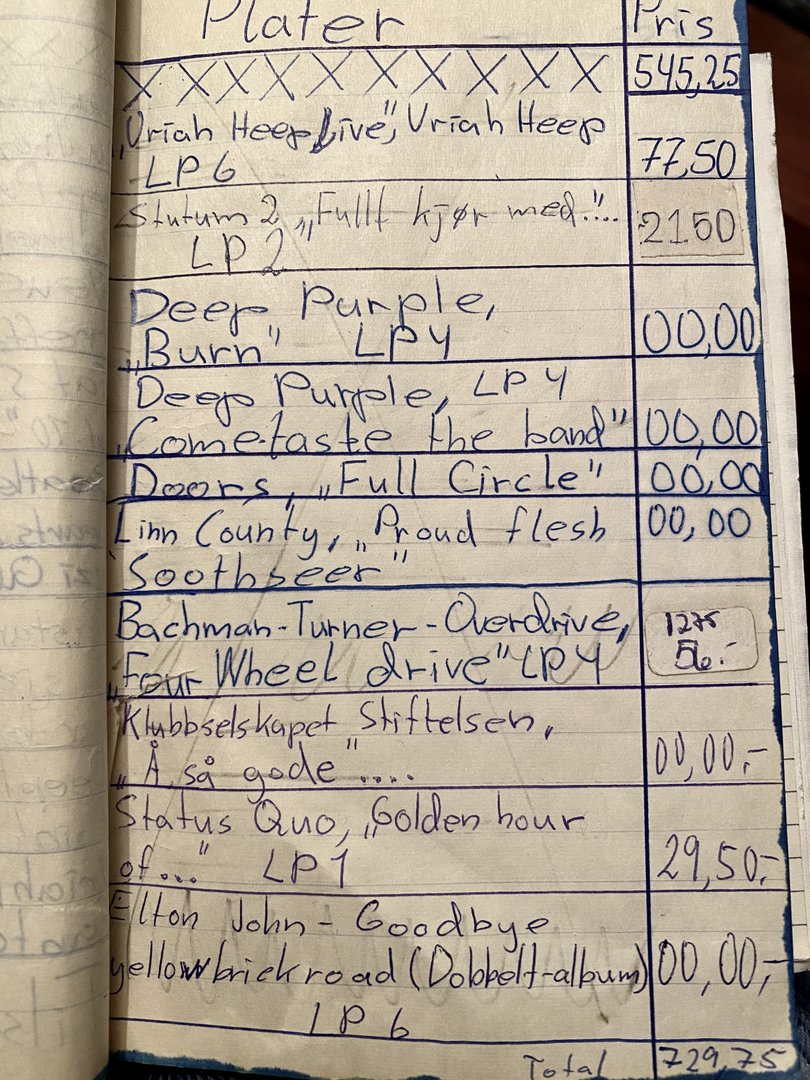 Plater Pris
XXXXXXXXXX 545,25
„Uriah Heep Live”, Uriah Heep
LP 6 77,50
Stutum 2 „Fullt kjør med.”..
LP 2 21.50
Deep Purple,
„Burn” LP4 00,00
Deep Purple, LP 4
„Come taste the band” 00,00
Doors, „Full Circle” 00,00
Linn County, „Proud flesh 00,00
Soothseer”
Bachman-Turner-Overdrive, 1275
„Four Wheel drive” LP4 56.-
Klubbselskapet Stiftelsen,
„Å, så gode”.... 00,00,-
Status Quo, „Golden hour
of...” LP 1 29,50,-
Elton John - Goodbye
yellow brick road (Dobbelt-album) 00,00,-
LP 6
Total 729,75